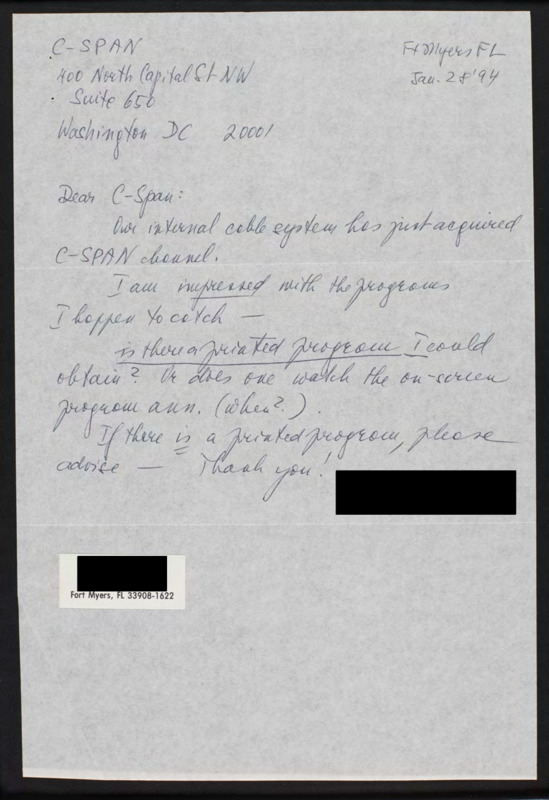 C-SPAN
Ft Myers FL
400 North Capital St NW
Jan. 28 '94
Suite 650
Washington DC 20001
Dear C-Span:
Our internal cable system has just acquired
C-SPAN channel.
I am impressed with the programs
I happen to catch —
is there a printed program I could
obtain? Or does one watch the on-screen
program ann. (when?).
If there is a printed program, please
advise — Thank you!
Fort Myers, FL 33908-1622